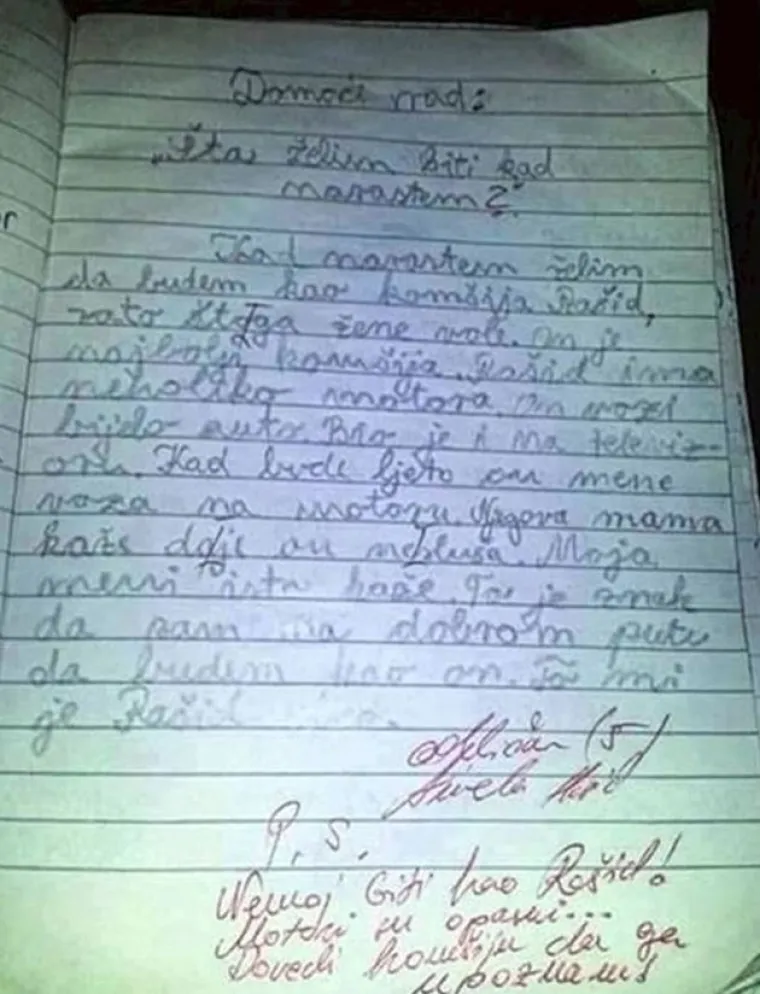 Domaći rad:
„Šta želim biti kad
narastem?"
Kad narastem želim
da budem kao komšija Rašid,
zato što ga žene vole. On je
najbolji komšija. Rašid ima
nekoliko motora. On vozi
bijelo auto. Bio je i na televiz-
oru. Kad bude ljeto on mene
voza na motoru. Njegova mama
kaže da je on nesluša. Moja
meni isto kaže. To je znak
da sam na dobrom putu
da budem kao on. To mi
je Rašid
odličan (5)
P.S.
Nemoj biti kao Rašid!
Motori su opasni...
Dovedi komšiju da ga
upoznamo